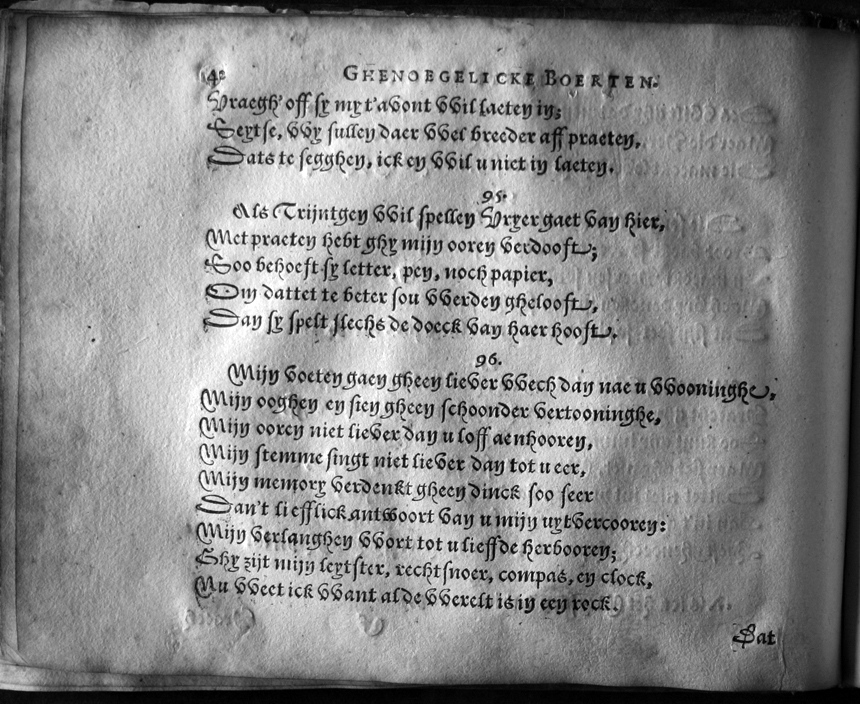 42 GHENOEGELICKE BOERTEN.
Vraegh' off sy my t'avont wil laeten in;
Seyt se, wy sullen daer wel breeder aff praeten,
Dats te segghen, ick en wil u niet in laeten.
95.
Als Trijntgen wil spellen Vryer gaet van hier,
Met praeten hebt ghy mijn ooren verdooft;
Soo behoeft sy letter, pen, noch papier,
Om dattet te beter sou werden ghelooft,
Dan sy spelt slechs de doeck van haer hooft.
96.
Mijn voeten gaen gheen liever wech dan nae u wooninghe,
Mijn ooghen en sien gheen schoonder vertooninghe,
Mijn ooren niet liever dan u loff aenhooren,
Mijn stemme singt niet liever dan tot u eer,
Mijn memory verdenkt gheen dinck soo seer
Dan't liefflick antwoort van u mijn uytvercooren:
Mijn verlanghen wort tot u lieffde herbooren;
Ghy zijt mijn leytster, rechtsnoer, compas, en clock,
Nu weet ick want al de werelt is in een rock.
Dat